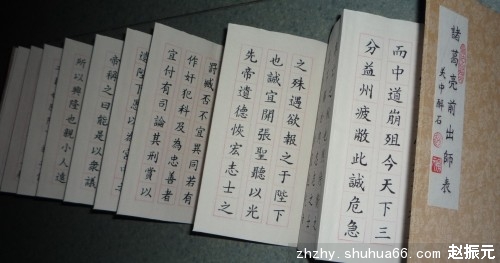 諸葛亮前出師表
关中解石
而中道崩殂今天下三
分益州疲敝此誠危急
之殊遇欲報之于陛下
也誠宜開張聖聽以光
先帝遺德恢宏志士之
罰臧否不宜異同若有
作奸犯科及為忠善者
宜付有司論其刑賞以
遺陛下愚以為宮中之
帝稱之曰能是以眾議
所以興隆也親小人遠
zhzhy.shuhua66.com 赵振元